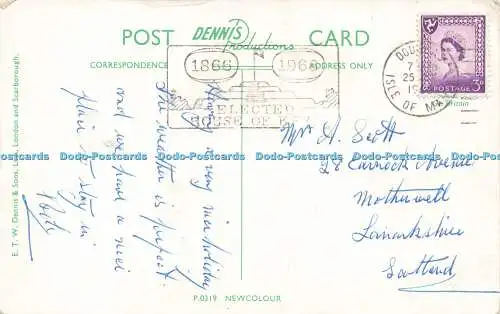 POST DENNIS CARD
Productions
CORRESPONDENCE ADDRESS ONLY
1866 1966
ELECTED
HOUSE OF KEYS
ISLE OF MAN
POSTAGE 3D
Having a very nice holiday
The weather is perfect
and we have a nice
place to stay in
Mr A. Scott
28 Carnock Avenue
Motherwell
Lanarkshire
Scotland
E. T. W. Dennis & Sons Ltd., London and Scarborough.
Dodo-Postcards Dodo-Postcards Dodo-Postcards Dodo-Postcards
P.0319 NEWCOLOUR